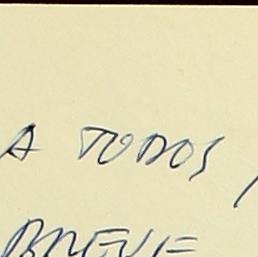 A TODOS,
BREVE